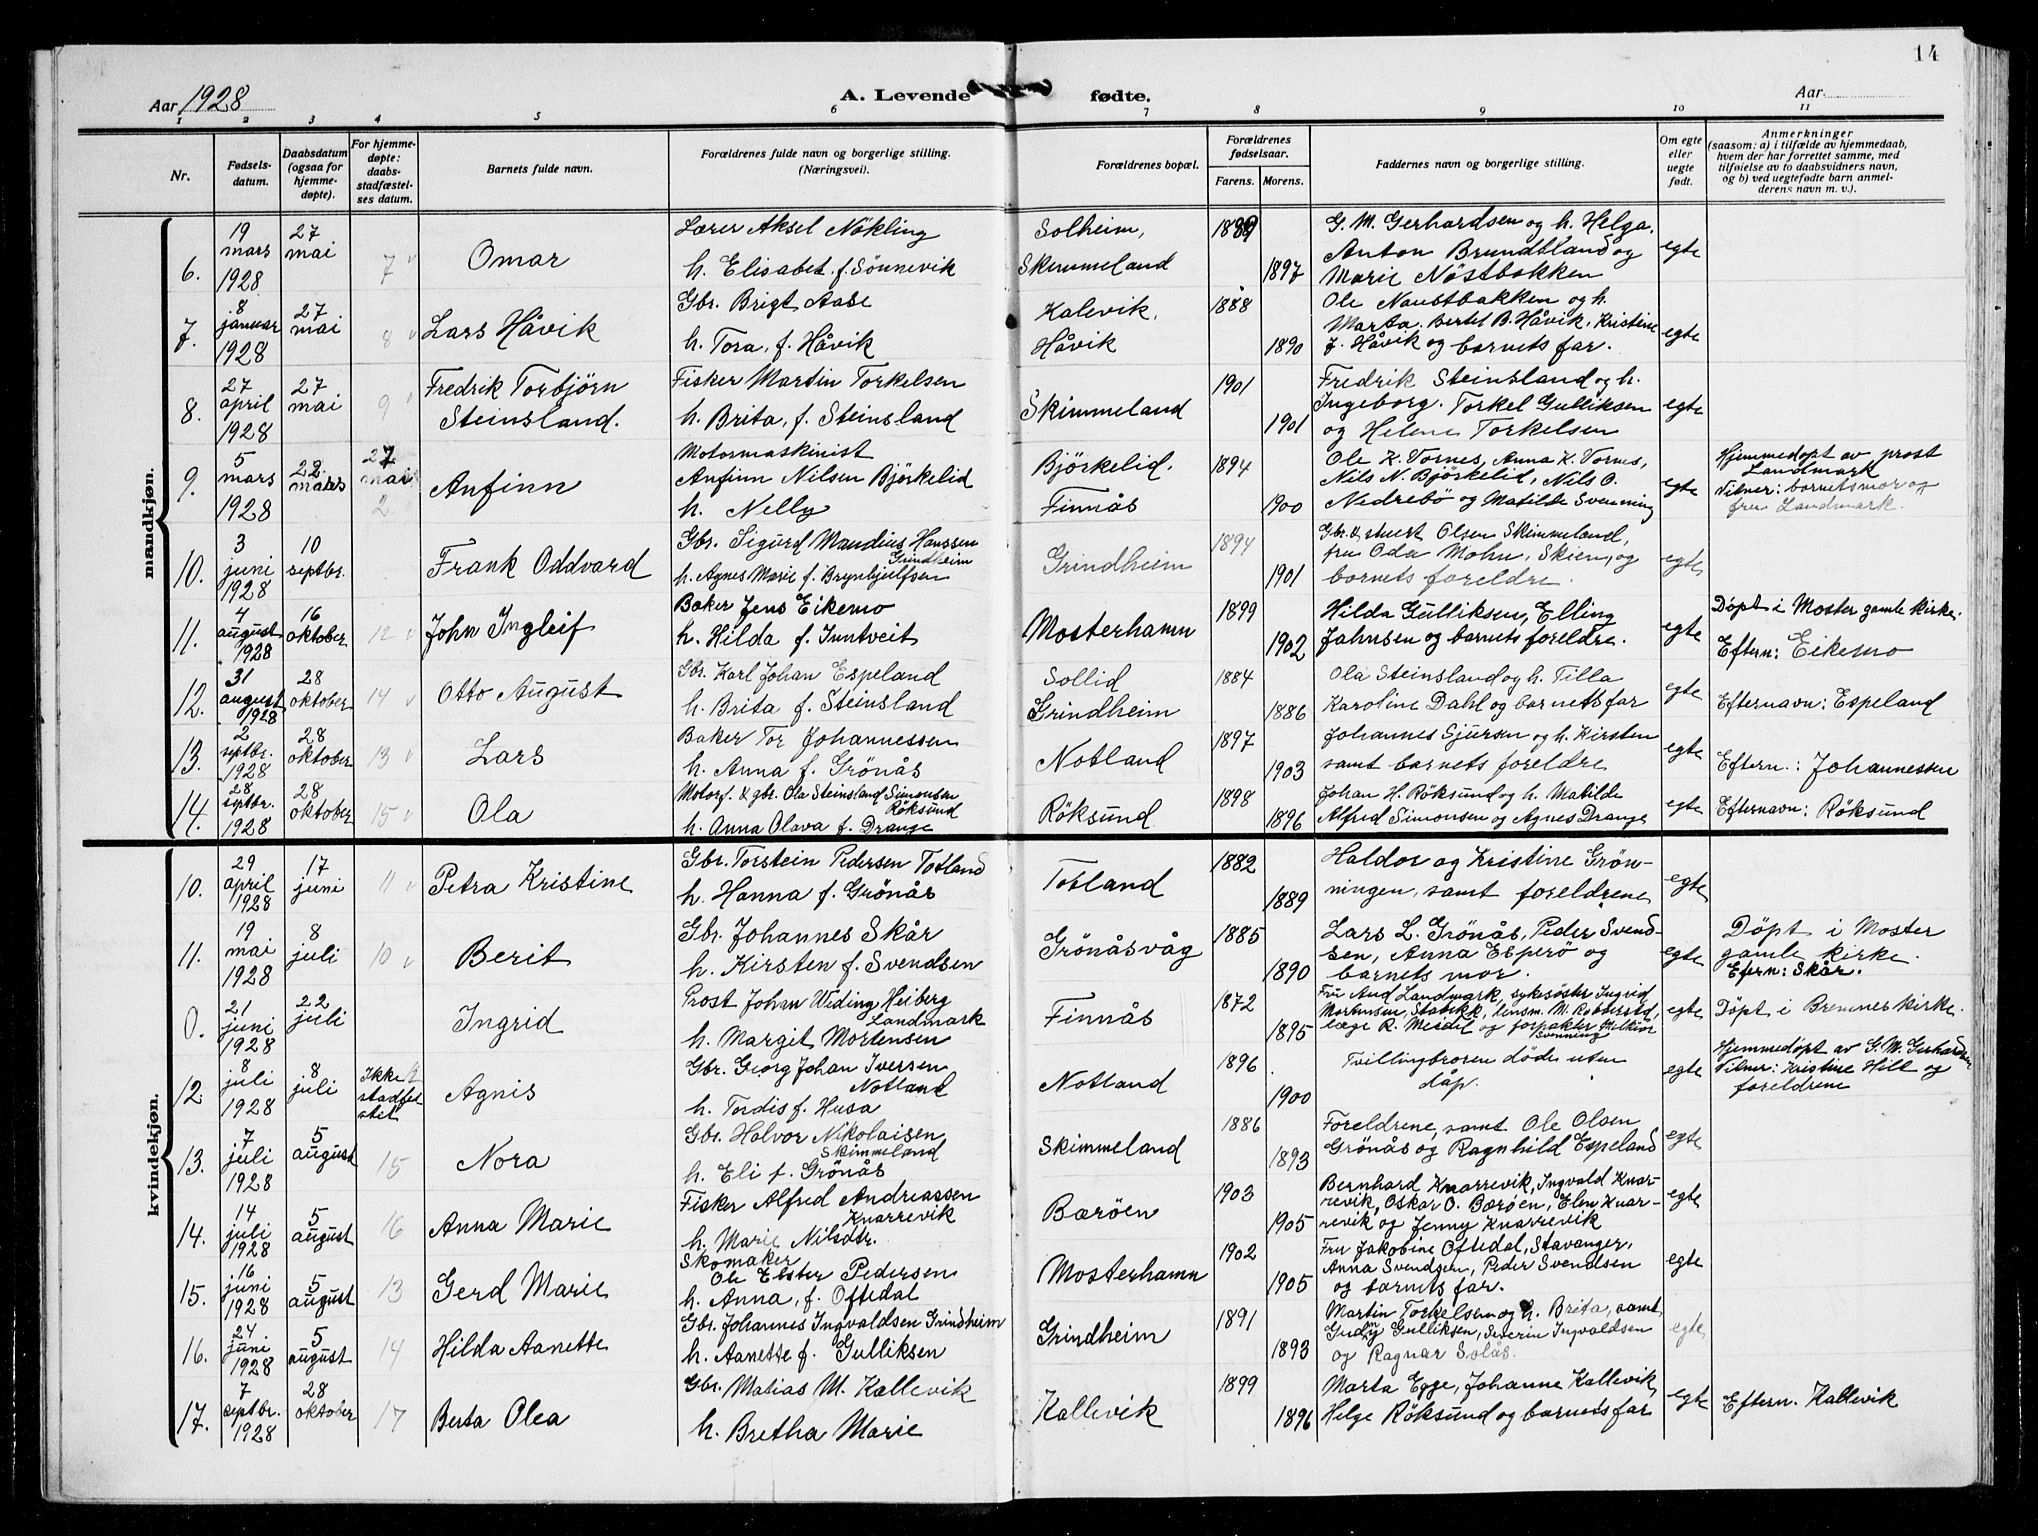 14
Aar 1928
A. Levende
fødte.
Aar
1 2 3 4 5 6 7 8 9 10 11
Nr.
Fødsels-
datum.
Daabsdatum
(ogsaa for
hjemme-
døpte).
For hjemme-
døpte:
daabs-
stadfæstel-
ses datum.
Barnets fulde navn.
Forældrenes fulde navn og borgerlige stilling.
(Næringsvei).
Forældrenes bopæl.
Forældrenes
fødselsaar.
Farens. Morens.
Faddernes navn og borgerlige stilling.
Om egte
eller
uegte
født.
Anmerkninger
(saasom: a) i tilfælde av hjemmedaab,
hvem der har forrettet samme, med
tilføielse av to daabsvidners navn,
og b) ved uegtefødte barn anmel-
derens navn m. v.).
mandkjøn.
6.
19
mars
1928
27
mai
7
Omar
Lærer Aksel Nökling
h. Elisabet f. Sönnevik
Solheim,
Skimmeland
1889
1897
G. M. Gerhardsen og h. Helga.
Anton Brundtland og
Marie Nöstbakken
egte
7.
8
januar
1928
27
mai
8
Lars Håvik
Gbr. Brigt Aase
h. Tora, f. Håvik
Kalevik,
Håvik
1888
1890
Ole Naustbakken og h.
Marta. Bertel B. Håvik, Kristine
J. Håvik og barnets far.
egte
8.
27
april
1928
27
mai
9
Fredrik Torbjörn
Steinsland.
Fisker Martin Torkelsen
h. Brita, f. Steinsland
Skimmeland
1901
1901
Fredrik Steinsland og h.
Ingeborg. Torkel Gulliksen
og Helene Torkelsen
egte
9.
5
mars
1928
22
mars
27
mai
2
Anfinn
Motormaskinist
Anfinn Nilsen Björkelid
h. Nelly
Björkelid.
Finnås
1894
1900
Ole K. Vornes, Anna K. Vornes,
Nils N. Björkelid, Nils O.
Nedrebö og Matilde Svenning
egte
Hjemmedöpt av prost
Landmark
Vitner: barnets mor og
fru Landmark.
10.
3
juni
1928
10
septbr.
Frank Oddvard
Gbr. Sigurd Mandius Hanssen
Grindheim
h. Agnes Marie f. Brynhjulfsen
Grindheim
1894
1901
Gbr. & stuert Olsen Skimmeland,
fru Oda Mohn, Skien, og
barnets foreldre.
egte
11.
4
august
1928
16
oktober
12
John Ingleif
Baker Jens Eikemo
h. Hilda f. Inntveit
Mosterhamn
1899
1902
Hilda Gulliksen, Elling
Jahnsen og barnets foreldre.
egte
Döpt i Moster gamle kirke.
Eftern: Eikemo
12.
31
august
1928
28
oktober
14
Otto August
Gbr. Karl Johan Espeland
h. Brita f. Steinsland
Sollid
Grindheim
1884
1886
Ola Steinsland og h. Tilla
Karoline Dahl og barnets far
egte
Efternavn: Espeland
13.
2
septbr.
1928
28
oktober
13
Lars
Baker Tor Johannessen
h. Anna f. Grönås
Notland
1897
1903
Johannes Sjursen og h. Kirsten
samt barnets foreldre
egte
Eftern.: Johannessen
14.
28
septbr.
1928
28
oktober
15
Ola
Motorf. & gbr. Ola Steinsland Simonsen
Röksund
h. Anna Olava f. Drange
Röksund
1898
1896
Johan H. Röksund og h. Matilde
Alfred Simonsen og Agnes Drange
egte
Efternavn: Röksund
kvindekjøn.
10.
29
april
1928
17
juni
11
Petra Kristine
Gbr. Torstein Pedersen Totland
h. Hanna f. Grönås
Totland
1882
1889
Haldor og Kristine Grön-
ningen, samt foreldrene
egte
11.
19
mai
1928
8
juli
10
Berit
Gbr. Johannes Skår
h. Kirsten f. Svendsen
Grönåsvåg
1885
1890
Lars L. Grönås, Peder Svend-
sen, Anna Esperö og
barnets mor.
egte
Döpt i Moster
gamle kirke.
Efern: Skår.
0.
21
juni
1928
22
juli
Ingrid
Prost Johan Widing Heiberg
Landmark
h. Margit Mortensen
Finnås
1872
1895
Fru Aud Landmark, syksöster Ingrid
Mortensen, Stabekk, lensm. M. Robberstad,
læge R. Meidel og forpakter Melkior
Svenning
egte
Döpt i Bremnes kirke.
12.
8
juli
1928
8
juli
Ikke
stadfe
stet
Agnis
Gbr. Georg Johan Iversen
Notland
h. Tordis f. Husa
Notland
1896
1900
Tvillingbroren döde uten
dåp.
egte
Hjemmedöpt av G. M. Gerhardsen
Vitner: Kristine Hilt og
foreldrene
13.
7
juli
1928
5
august
15
Nora
Gbr. Halvor Nikolaisen
Skimmeland
h. Eli f. Grönås
Skimmeland
1886
1893
Foreldrene, samt Ole Olsen
Grönås og Ragnhild Espeland
egte
14.
14
juli
1928
5
august
16
Anna Marie
Fisker Alfred Andreassen
Knarrevik
h. Marie Nilsdtr.
Barøen
1903
1905
Bernhard Knarrevik, Ingvald Knar-
revik, Oskar O. Barøen, Elen Knar-
revik og Jenny Knarrevik
egte
15.
16
juni
1928
5
august
13
Gerd Marie
Skomaker
Ole Ebster Pedersen
h. Anna, f. Oftedal
Mosterhamn
1902
1905
Fru Jakobine Oftedal, Stavanger,
Anna Svendsen, Peder Svendsen
og barnets far.
egte
16.
24
juni
1928
5
august
14
Hilda Aanette
Gbr. Johannes Ingvaldsen Grindheim
h. Aanette f. Gulliksen
Grindheim
1891
1893
Martin Torkelsen og h. Brita, samt
Gulliksen, Severin Ingvaldsen
og Ragnar Solås.
egte
17.
7
septbr.
1928
28
oktober
17
Berta Olea
Gbr. Matias M. Kallevik
h. Bretha Marie
Kallevik
1899
1896
Marta Egge, Johanne Kallevik,
Helge Röksund og barnets far
egte
Eftern. Kallevik